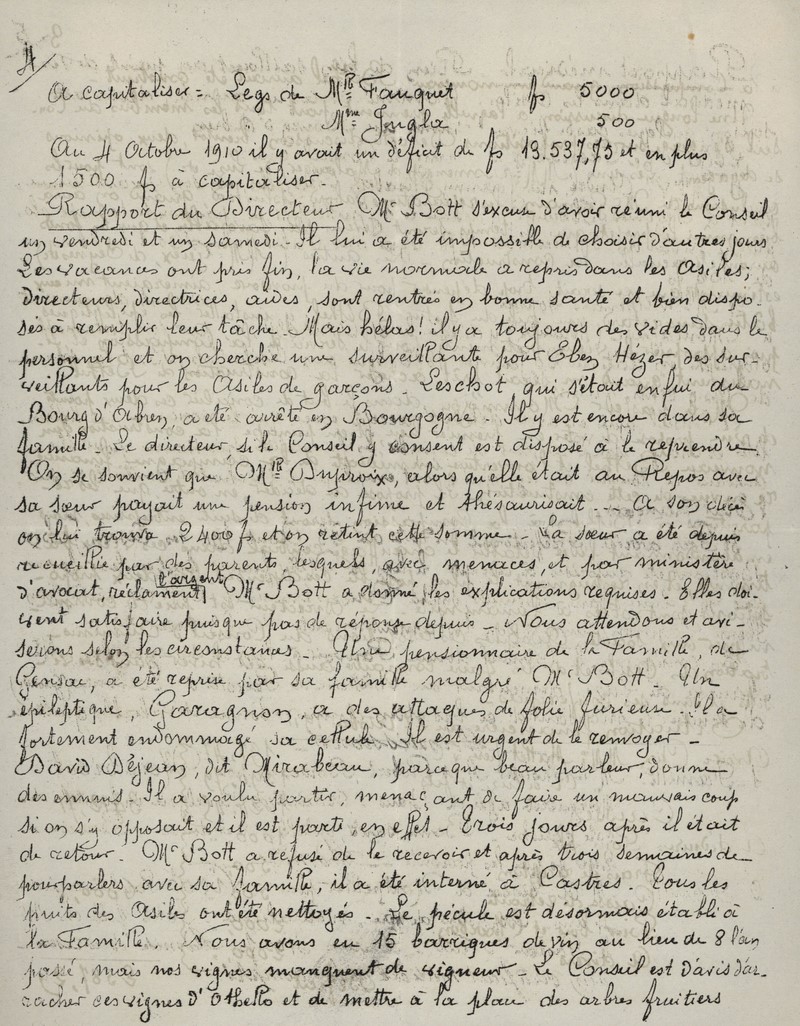 4/
A capitaliser = Legs de Mlle Fauquet f 5000
Mme Ingla 500
Au 4 Octobre 1910 il y avait un déficit de f 13.537,75 et en plus
1500 f à capitaliser.
Rapport du Directeur Mr Bott s'excuse d'avoir réuni le Conseil
un vendredi et un samedi. Il lui a été impossible de choisir d'autres jours
Les vacances ont pris fin, la vie normale a repris dans les Asiles;
directeurs, directrices, aides, sont rentrés en bonne santé et bien dispo-
sés à remplir leur tâche. Mais hélas! il y a toujours des vides dans le
personnel et on cherche une surveillante pour Eben Hézer des sur-
veillants pour les Asiles de garçons. Leschot, qui s'était enfui du
Bourg d'Abren, a été arrêté en Bourgogne. Il y est encore dans sa
famille. Le directeur, si le Conseil y consent est disposé à le reprendre.
On se souvient que Mlle , alors qu'elle était au Repos avec
sa sœur payait une pension infime et thésaurisait ... A son décès
on lui trouva 2400 f et on retint cette somme. La sœur a été depuis
recueillie par des parents, lesquels, avec menaces, et par ministère
d'avocat, réclament l'argent Mr Bott a donné les explications requises. Elles doi-
vent satisfaire puisque pas de réponse depuis. Nous attendons et avi-
serons selon les circonstances. Une pensionnaire de la Famille, de
Gensac, a été reprise par sa famille malgré Mr Bott. Un
épileptique, Garagnon, a des attaques de folie furieuse. Il a
fortement endommagé sa cellule. Il est urgent de le renvoyer.
David Déjean, dit Mirabeau, parce que beau parleur, donne
des ennuis. Il a voulu partir, menaçant de faire un mauvais coup
si on s'y opposait et il est parti, en effet. Trois jours après il était
de retour. Mr Bott a refusé de le recevoir et après trois semaines de
pourparlers avec sa famille, il a été interné à Castres. Tous les
puits des Asiles ont été nettoyés. Le pécule est désormais établi à
la Famille. Nous avons eu 15 barriques de vin au lieu de 8 l'an
passé, mais nos vignes manquent de vigueur. Le Conseil est d'avis d'ar-
racher ces vignes d'Othello et de mettre à la place des arbres fruitiers